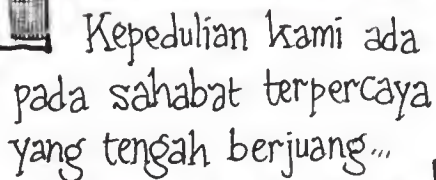 Kepedulian kami ada
pada sahabat terpercaya
yang tengah berjuang...